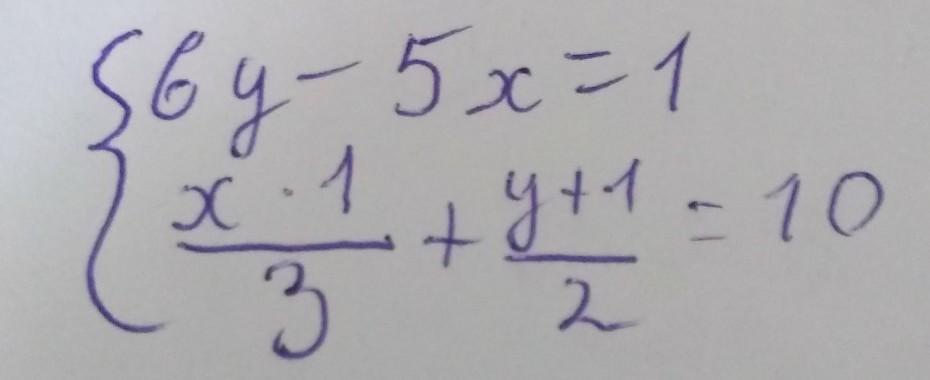 {6y - 5x = 1
x · 1/3 + y + 1/2 = 10